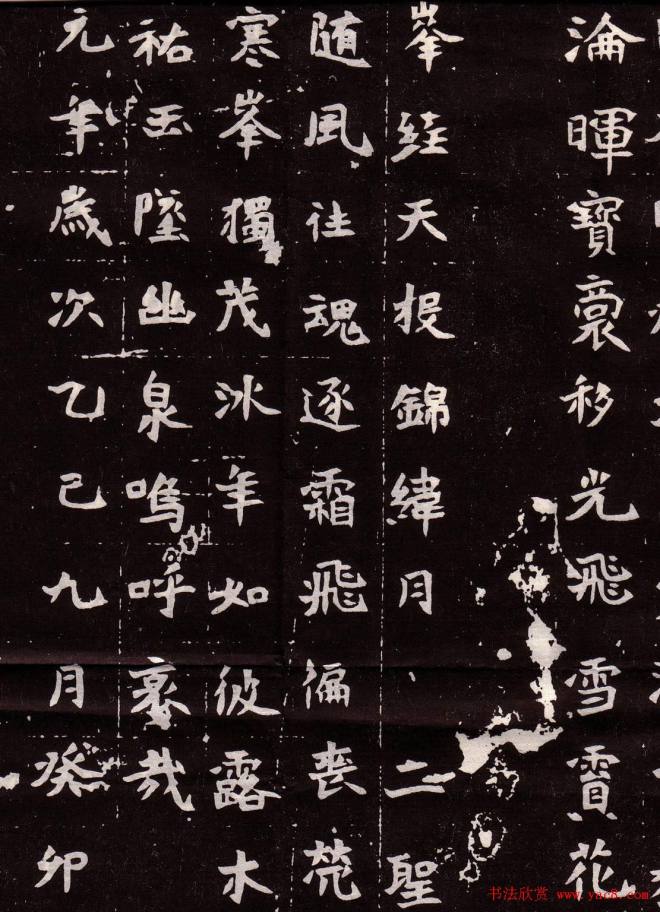 淪暉寶移光飛雪霣花
峯經天投錦緯月 二聖
随風往魂逐霜飛偏喪
寒峯獨茂冰年如彼露木
祐玉墜幽泉嗚呼哀哉
元年歲次乙巳九月癸卯
书法欣赏 www.yac8.com